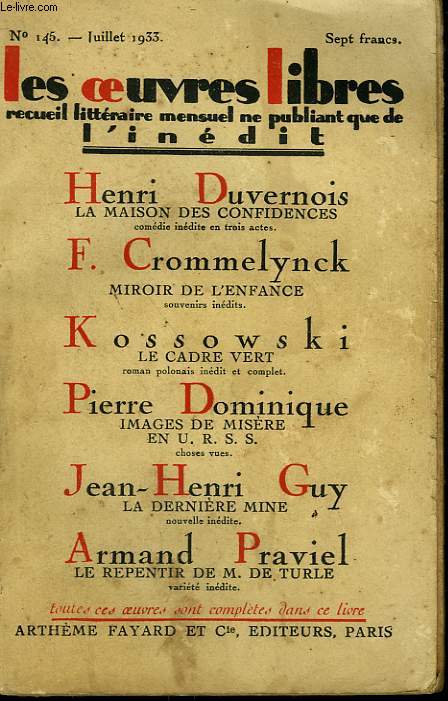 Le-livre.com
Nº 145. — Juillet 1933. Sept francs.
les œuvres libres
recueil littéraire mensuel ne publiant que de
l'inédit
Henri Duvernois
LA MAISON DES CONFIDENCES
comédie inédite en trois actes.
F. Crommelynck
MIROIR DE L'ENFANCE
souvenirs inédits.
Kossowski
LE CADRE VERT
roman polonais inédit et complet.
Pierre Dominique
IMAGES DE MISÈRE
EN U. R. S. S.
choses vues.
Jean-Henri Guy
LA DERNIÈRE MINE
nouvelle inédite.
Armand Praviel
LE REPENTIR DE M. DE TURLE
variété inédite.
toutes ces œuvres sont complètes dans ce livre
ARTHÈME FAYARD ET Cie, EDITEURS, PARIS